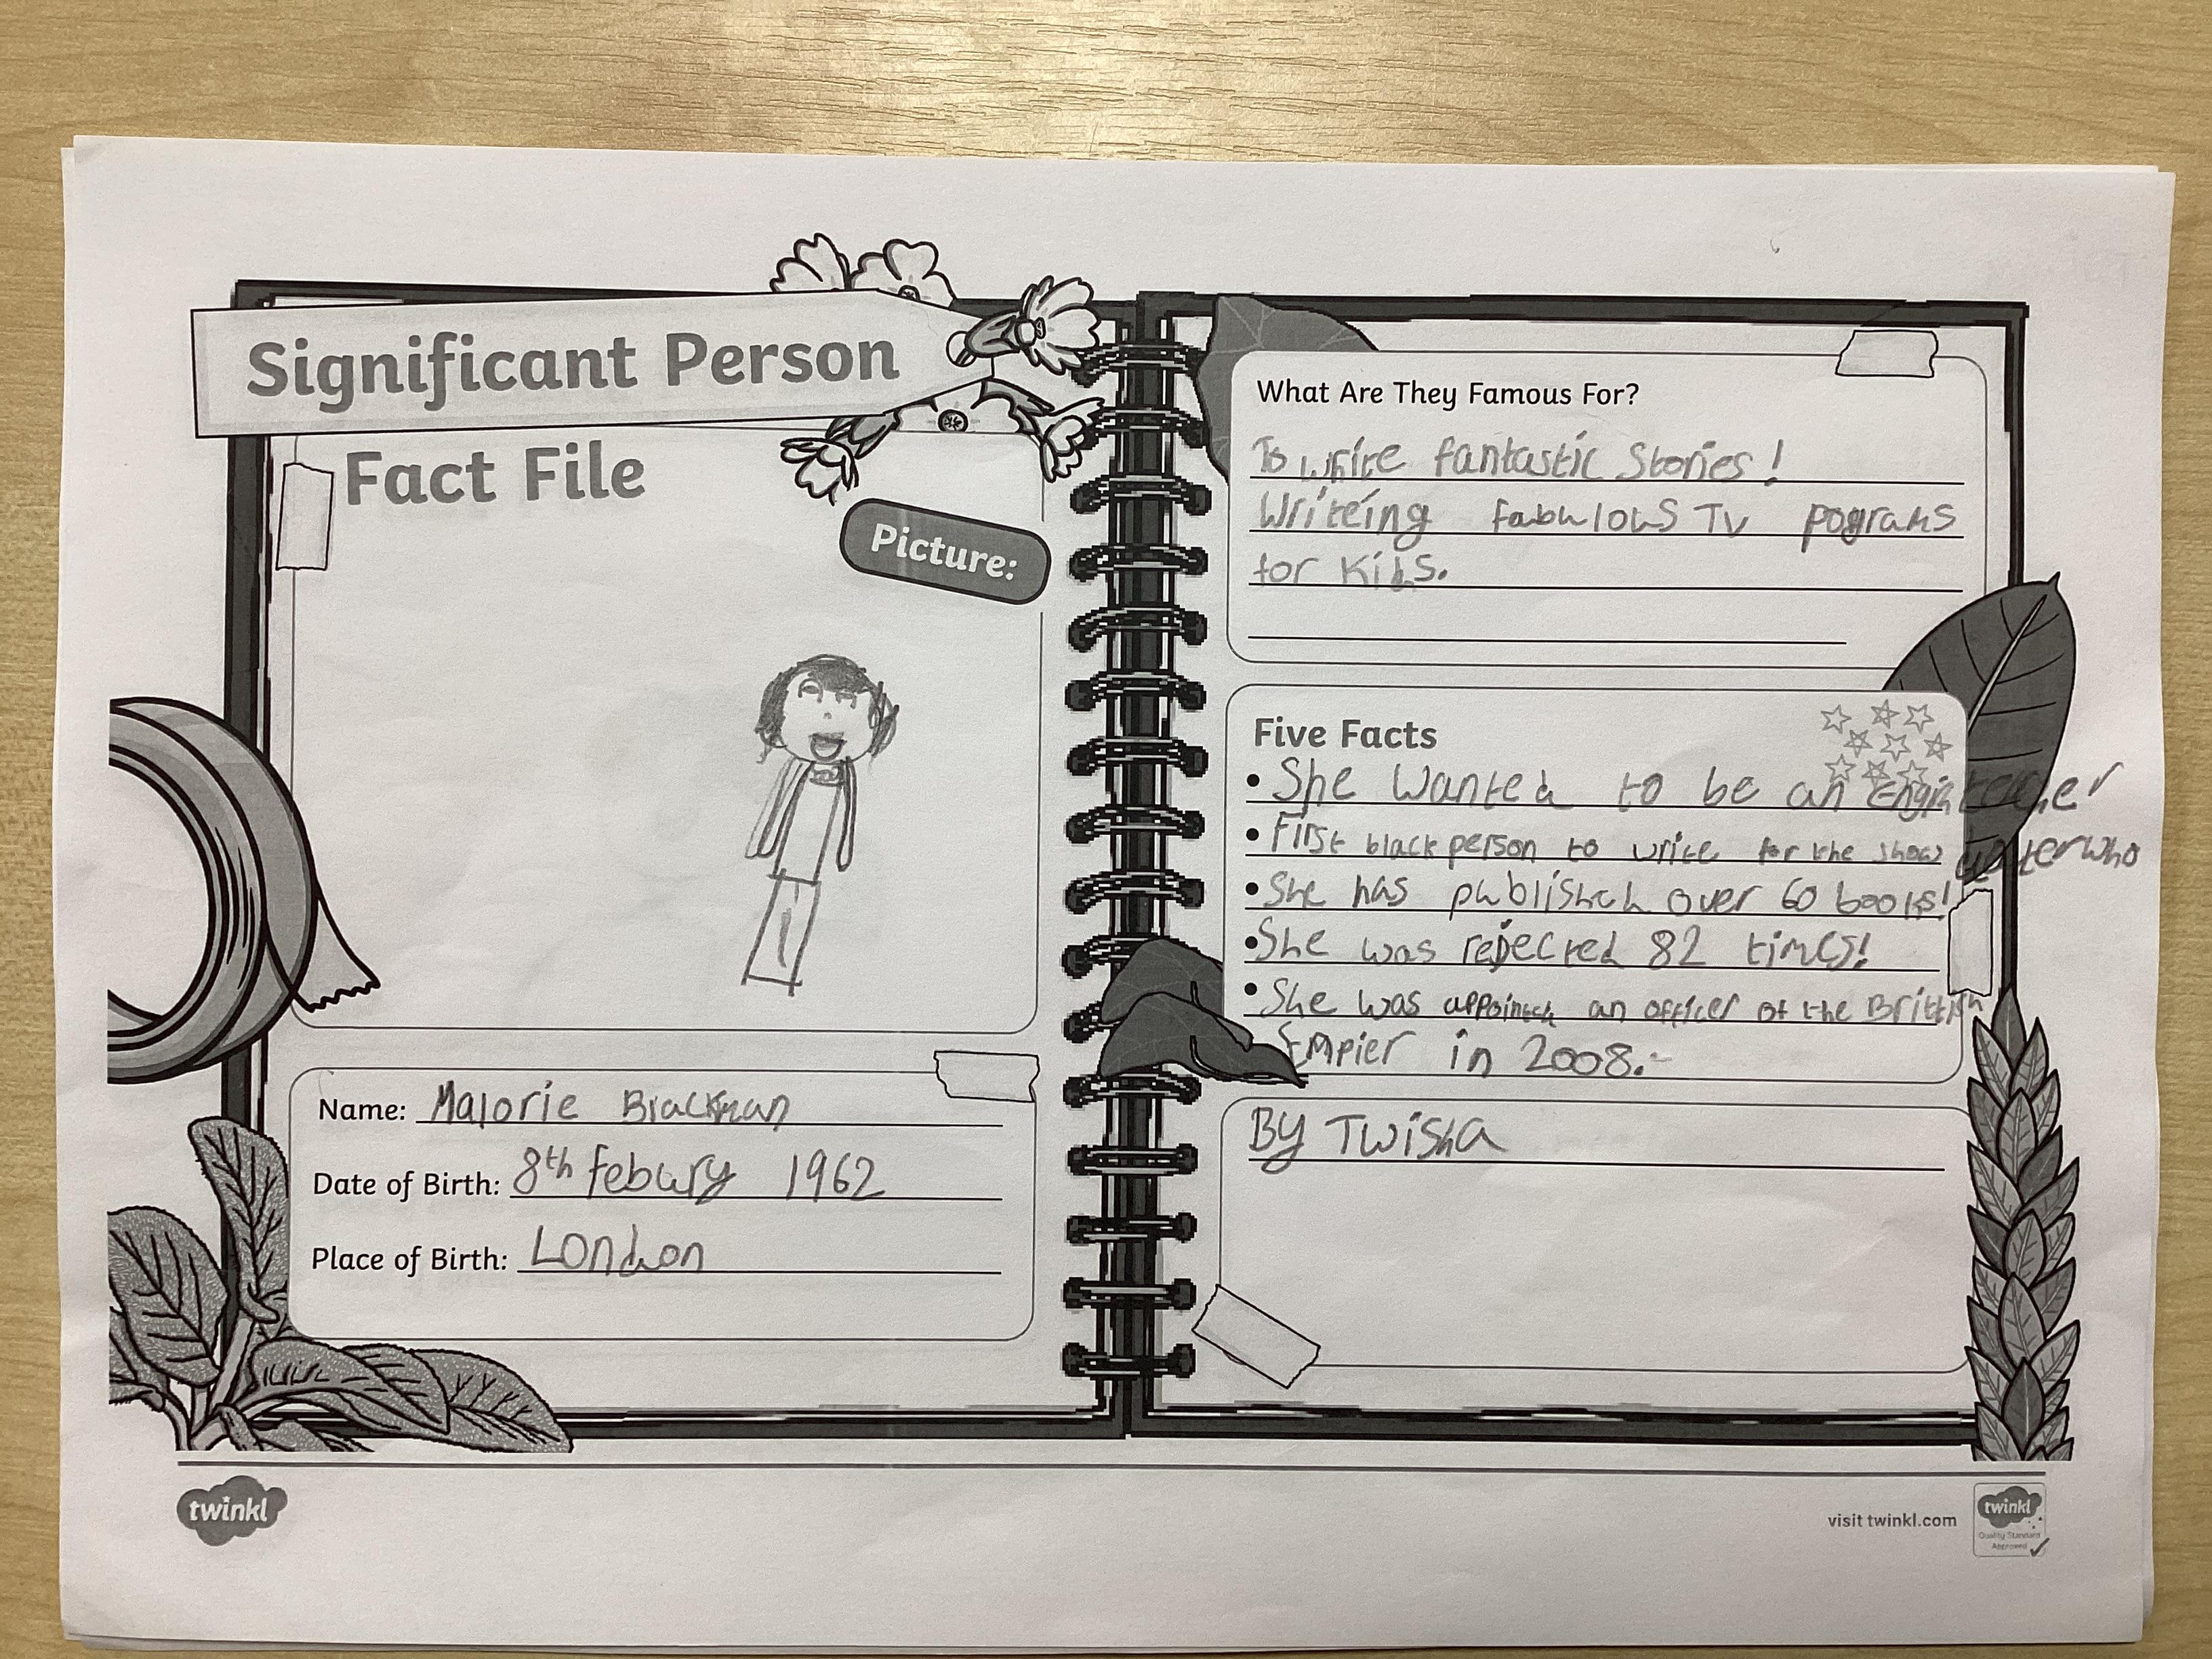 Significant Person
Fact File
Picture:
Name: Malorie Blackman
Date of Birth: 8th Febury 1962
Place of Birth: London
What Are They Famous For?
To write fantastic Stories!
Writeing fabulous Tv pograms
for Kids.
Five Facts
• She wanted to be an teacher
• First black person to write for the show who
• She has published over 60 books!
• She was rejected 82 times!
• She was appointed an officer of the Brittish
Empier in 2008.
By Twisha
twinkl
visit twinkl.com
twinkl
Quality Standard
Approved